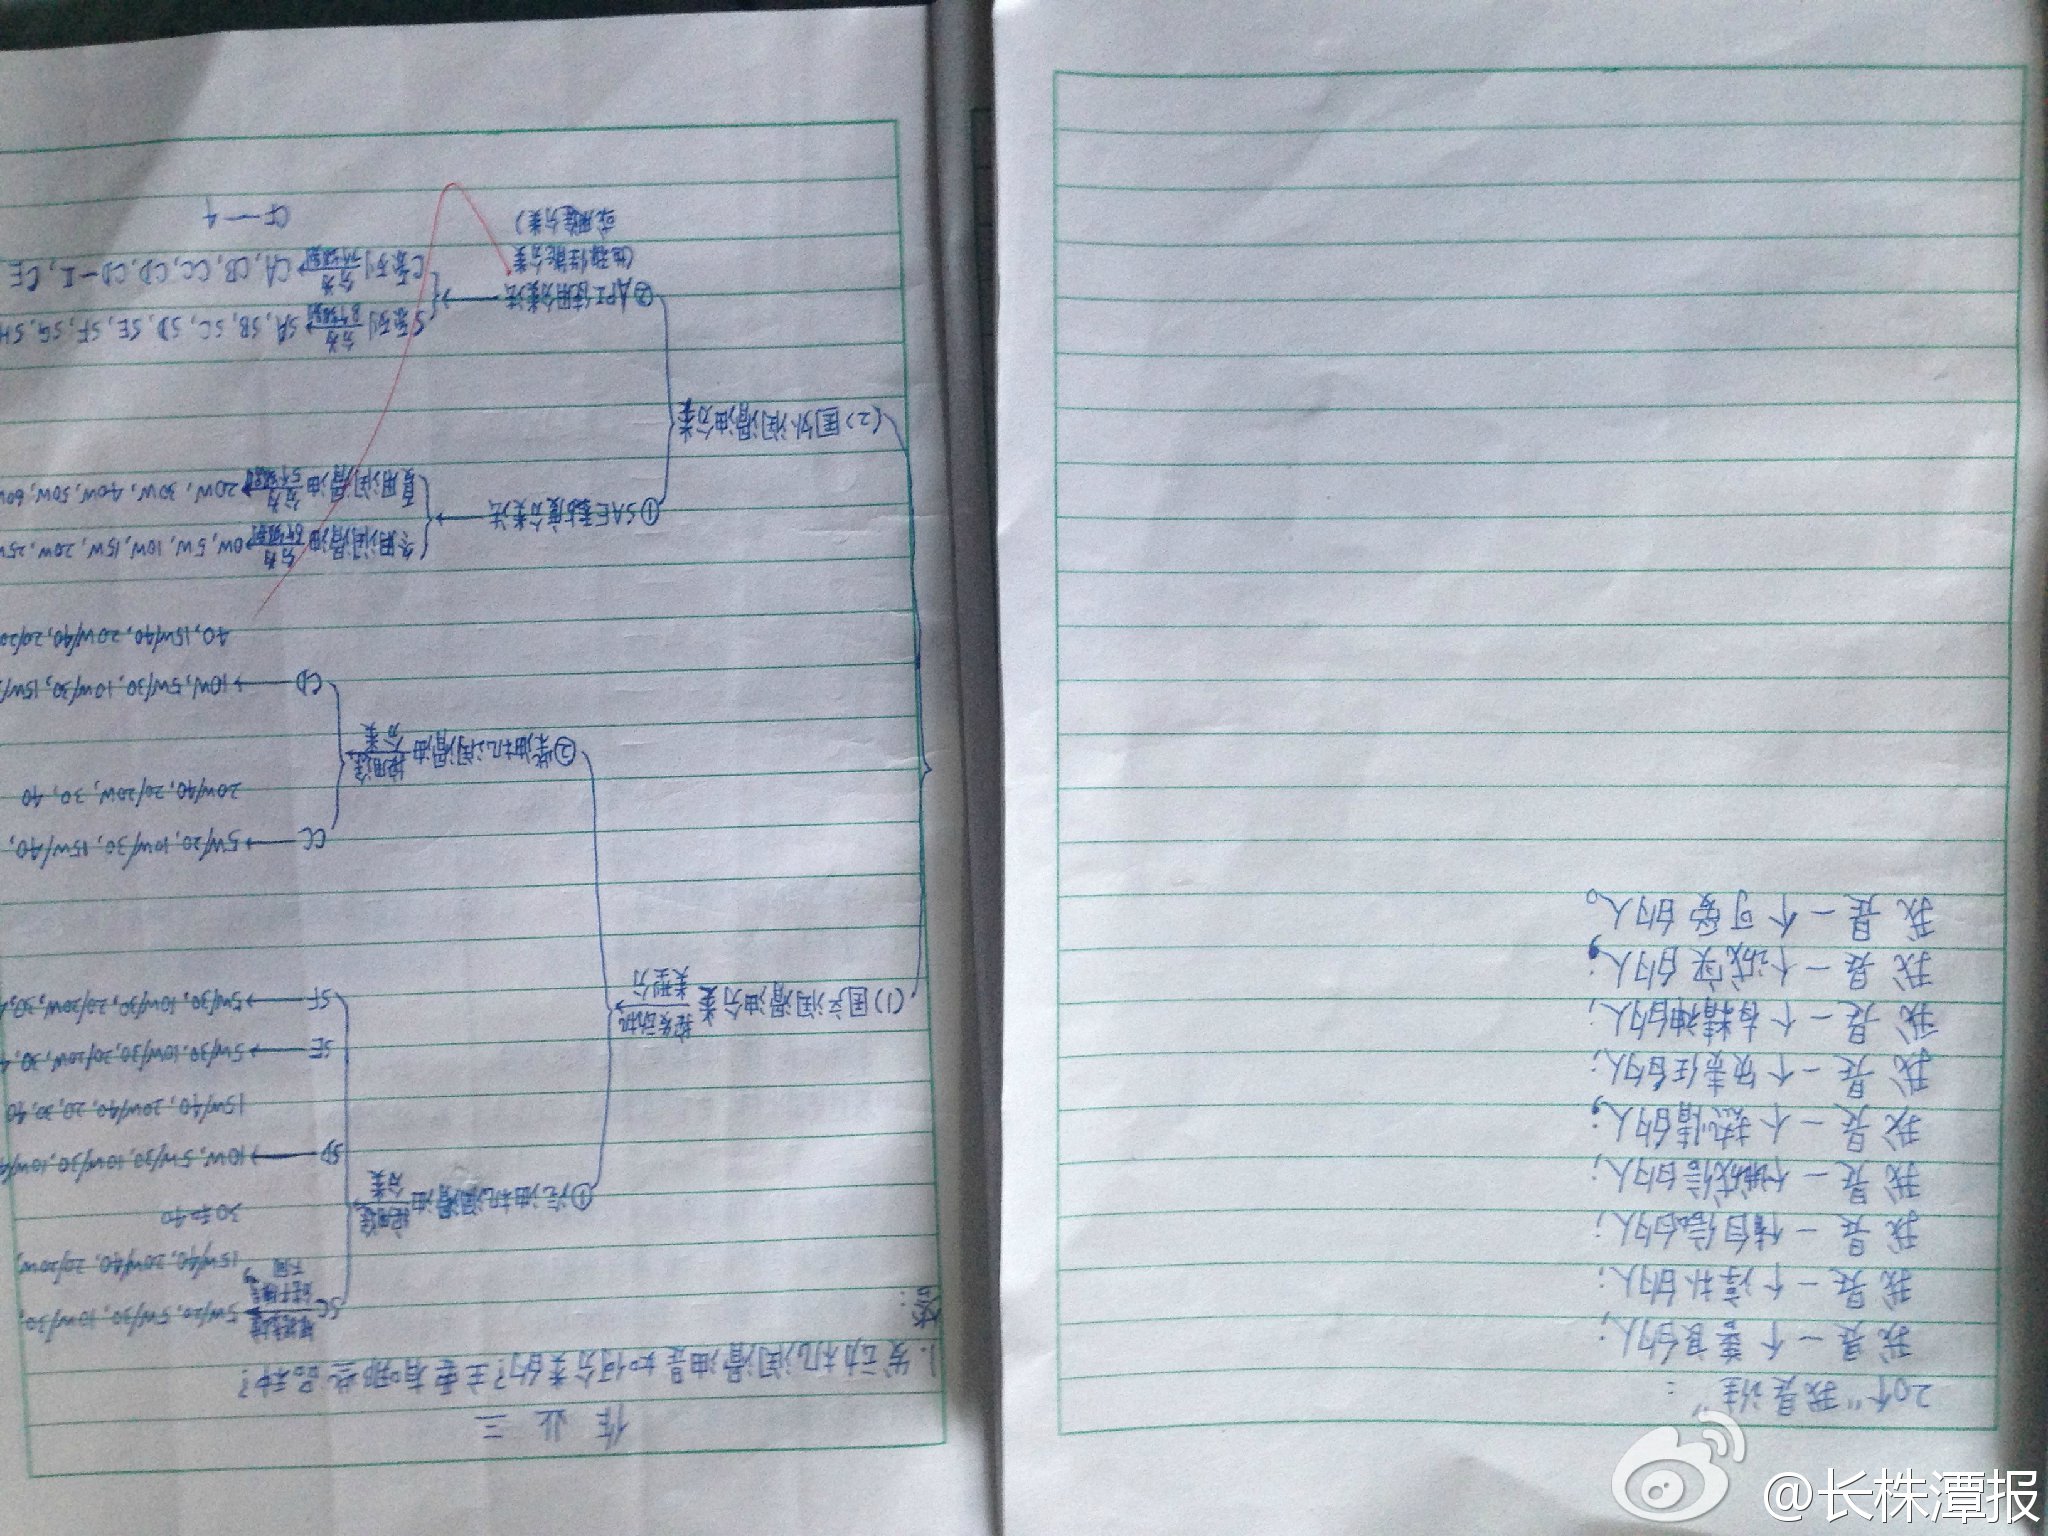 20个"我是谁":
我是一个善良的人;
我是一个淳朴的人;
我是一个有自信的人;
我是一个诚信的人;
我是一个热情的人;
我是一个负责任的人;
我是一个有精神的人;
我是一个诚实的人;
我是一个可爱的人。
作业三
1.发动机润滑油是如何分类的?主要有哪些品种?
答:
(1)国产润滑油分类 按发动机类型分
①汽油机润滑油 按用途分类
SC 5W/20, 5W/30, 10W/30,
15W/40, 20W/40, 20/20W,
30和40
SD→10W, 5W/30, 10W/30, 10W/4
15W/40, 20W/40, 20, 30, 40
SE→5W/30, 10W/30, 20/20W, 30, 4
SF→5W/30, 10W/30, 20/20W, 30,
②柴油机润滑油 按用途分类
CC→5W/20, 10W/30, 15W/40,
20W/40, 20/20W, 30, 40
CD→10W, 5W/30, 10W/30, 15W/
40, 15W/40, 20W/40, 20/20
(2)国外润滑油分类
①SAE黏度分类法→
冬用润滑油 分为6个级别 0W, 5W, 10W, 15W, 20W, 25W
夏用润滑油 分为5个级别 20W, 30W, 40W, 50W, 60W
②API使用分类法→
(也称性能分类
或用途分类)
S系列 分为8个级别 SA, SB, SC, SD, SE, SF, SG, SH
C系列 分为 CA, CB, CC, CD, CD-Ⅱ, CE,
CF-4
@长株潭报